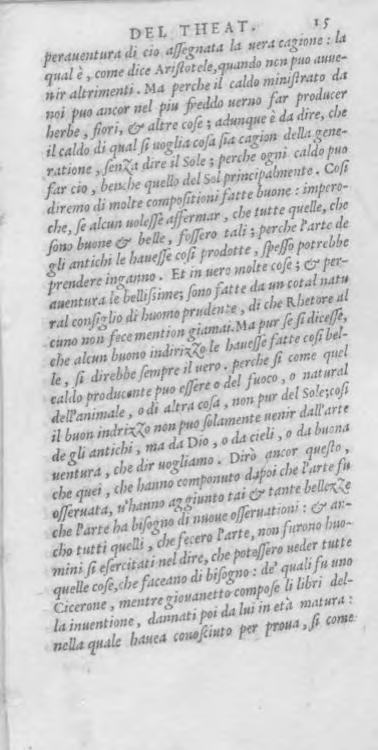 DEL THEAT. 15
perauentura di cio aſſegnata la uera cagione : la
qual è , come dice Ariſtotele, quando non puo auue-
nir altrimenti . Ma perche il caldo miniſtrato da
noi puo ancor nel piu freddo uerno far producer
herbe , fiori , & altre coſe ; adunque è da dire, che
il caldo di qual ſi uoglia coſa ſia cagion della gene-
ratione , ſenZa dire il Sole ; perche ogni caldo puo
far cio , benche quello del Sol principalmente . Coſi
diremo di molte compoſitioni fatte buone : impero-
che, ſe alcun uoleſſe affermar , che tutte quelle, che
ſono buone & belle , foſſero tali ; perche l'arte de
gli antichi le haueſſe coſi prodotte , ſpeſſo potrebbe
prendere inganno . Et in uero molte coſe ; & per-
auentura le belliſsime; ſono fatte da un cotal natu
ral conſiglio di huomo prudente , di che Rhetore al
cuno non fece mention giamai. Ma pur ſe ſi diceſſe,
che alcun buono indirizZo le haueſſe fatte coſi bel-
le , ſi direbbe ſempre il uero . perche ſi come quel
caldo producente puo eſſere o del fuoco , o natural
dell'animale , o di altra coſa , non pur del Sole; coſi
il buon indrizZo non puo ſolamente uenir dall'arte
de gli antichi , ma da Dio , o da cieli , o da buona
uentura , che dir uogliamo . Dirò ancor queſto ,
che quei , che hanno componuto dapoi che l'arte fu
oſſeruata, u'hanno aggiunto tai & tante bellezZe
che l'arte ha biſogno di nuoue oſſeruationi : & an-
cho tutti quelli , che fecero l'arte, non furono huo-
mini ſi eſercitati nel dire, che poteſſero ueder tutte
quelle coſe, che faceano di biſogno : de' quali fu uno
Cicerone , mentre giouanetto compoſe li libri del-
la inuentione , dannati poi da lui in età matura :
nella quale hauea conoſciuto per proua, ſi come